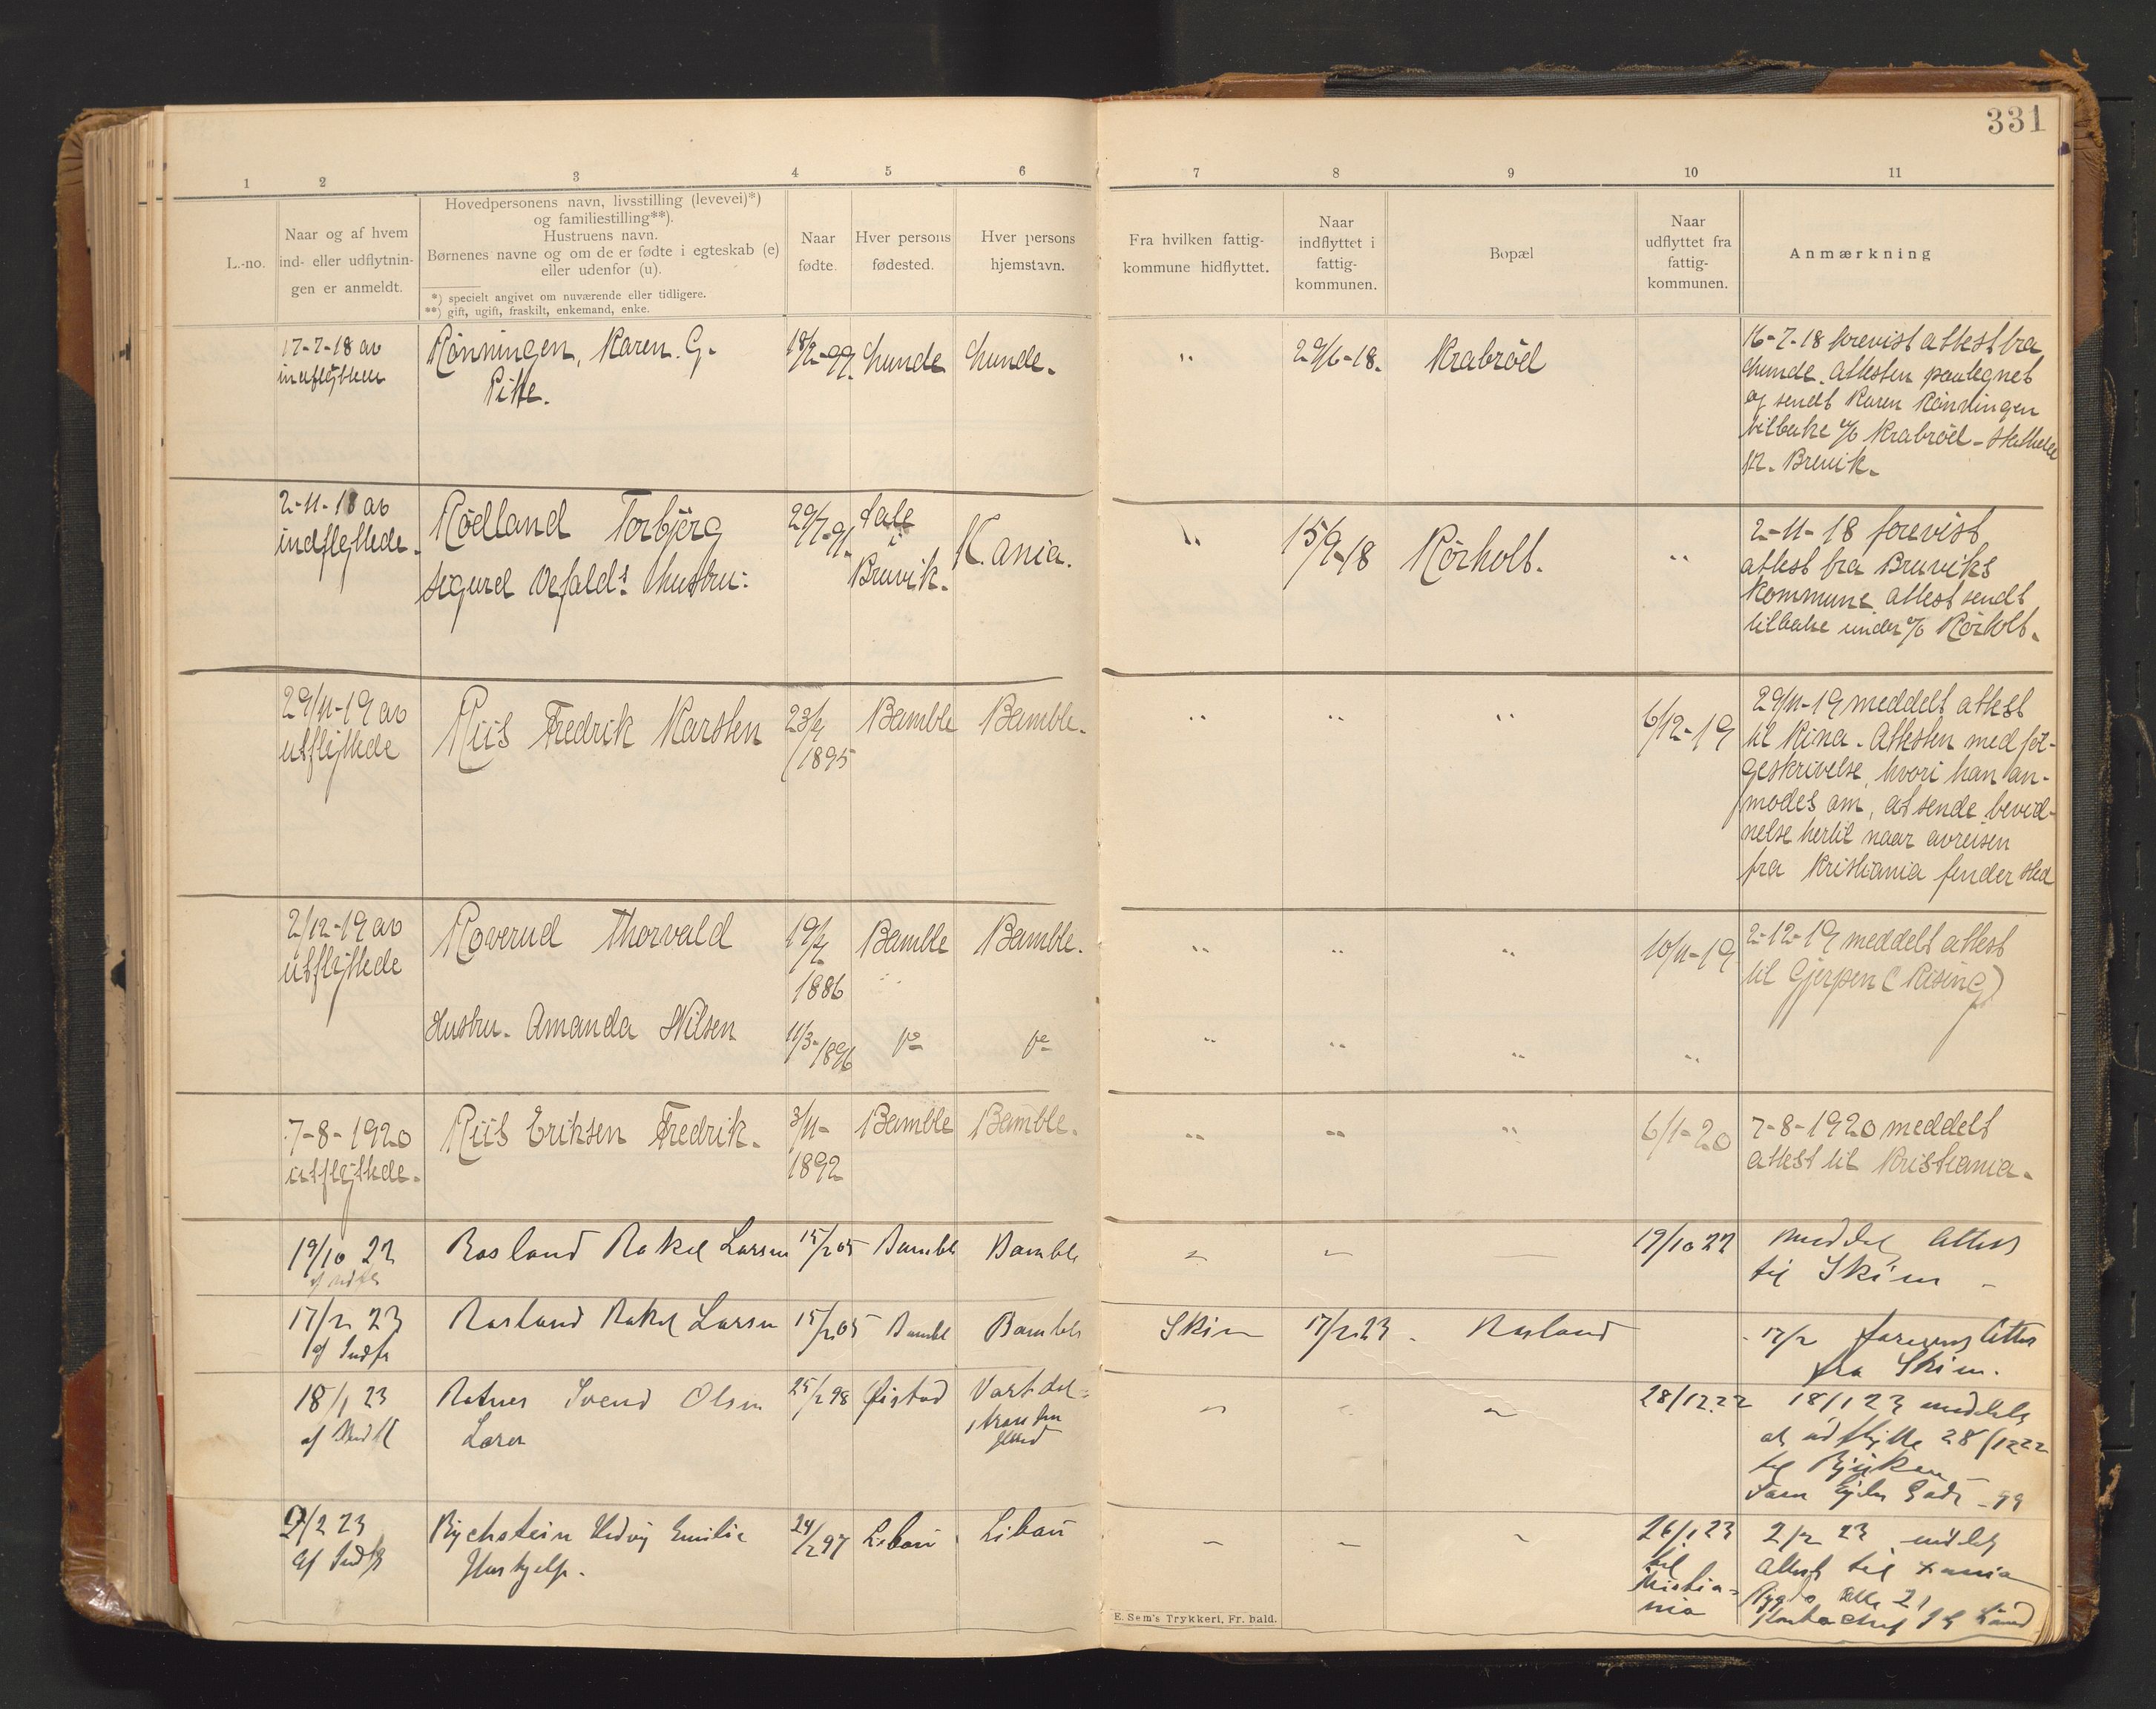 331
1 2 3 4 5 6 7 8 9 10 11
L.-no.
Naar og af hvem
ind- eller udflytnin-
gen er anmeldt.
Hovedpersonens navn, livsstilling (levevei)*)
og familiestilling**).
Hustruens navn.
Børnenes navne og om de er fødte i egteskab (e)
eller udenfor (u).
*) specielt angivet om nuværende eller tidligere.
**) gift, ugift, fraskilt, enkemand, enke.
Naar
fødte.
Hver persons
fødested.
Hver persons
hjemstavn.
Fra hvilken fattig-
kommune hidflyttet.
Naar
indflyttet i
fattig-
kommunen.
Bopæl
Naar
udflyttet fra
fattig-
kommunen.
Anmærkning
17-7-18 av
indflyttede
Rönningen, Karen. G.
Pike.
18/2-99.
Lunde
Lunde.
"
29/6-18.
Krabröd
16-7-18 forevist attest fra
Lunde. Attesten paategnet
og sendt Karen Rönningen
tilbake c/o Krabröd - Stathelle
pr. Brevik.
2-11-18 av
indflyttede.
Rödland Torbjörg
Sigurd Vefalds hustru:
29/7-91.
Dale
i
Bruvik.
K.ania.
"
15/9-18
Rörholt.
"
2-11-18 forevist
attest fra Bruviks
Kommune. Attest sendt
tilbake under c/o Rörholt.
29/11-19 av
utflyttede
Riis Fredrik Karsten
23/4
1895
Bamble
Bamble.
" " "
6/12-19
29/11-19 meddelt attest
til Kina. Attesten med föl-
geskrivelse, hvori han an-
modes om, at sende bevid-
nelse hertil naar avreisen
fra Kristiania finder sted
2/12-19 av
utflyttede
Roverud Thorvald
19/4
1886
Bamble
Bamble.
" " "
10/11-19
2-12-19 meddelt attest
til Gjerpen (Rising)
Hustru. Amanda Nilsen
11/3-1896
do
do
" " " "
7-8-1920
utflyttede.
Riis Eriksen Fredrik.
3/11-
1892
Bamble
Bamble.
" " "
6/1-20
7-8-1920 meddelt
attest til Kristiania.
19/10 22
Rosland Rakel Larsen
15/2 05
Bamble
Bamble
19/10 22
meddelt Attest
til Skien
17/2 23
af Indfl
Rosland Rakel Larsen
15/2 05
Bamble
Bamble
Skien
17/2.23.
Rosland
17/2 Attest
fra Skien.
18/1 23
Svend Olsen
Lærer
25/2 98
Ørstad
28/12.22
18/1 23 meddelt
at udflytte 28/12 22
til
2/2 23
af Indfl
Rychstein Hedvig Emilie
Hushjelp.
24/2 97
Libau
Libau
26/1 23
til
Kristia-
nia
2/2 23 meddelt
Attest til Xania
E. Sem's Trykkeri, Fr. hald.